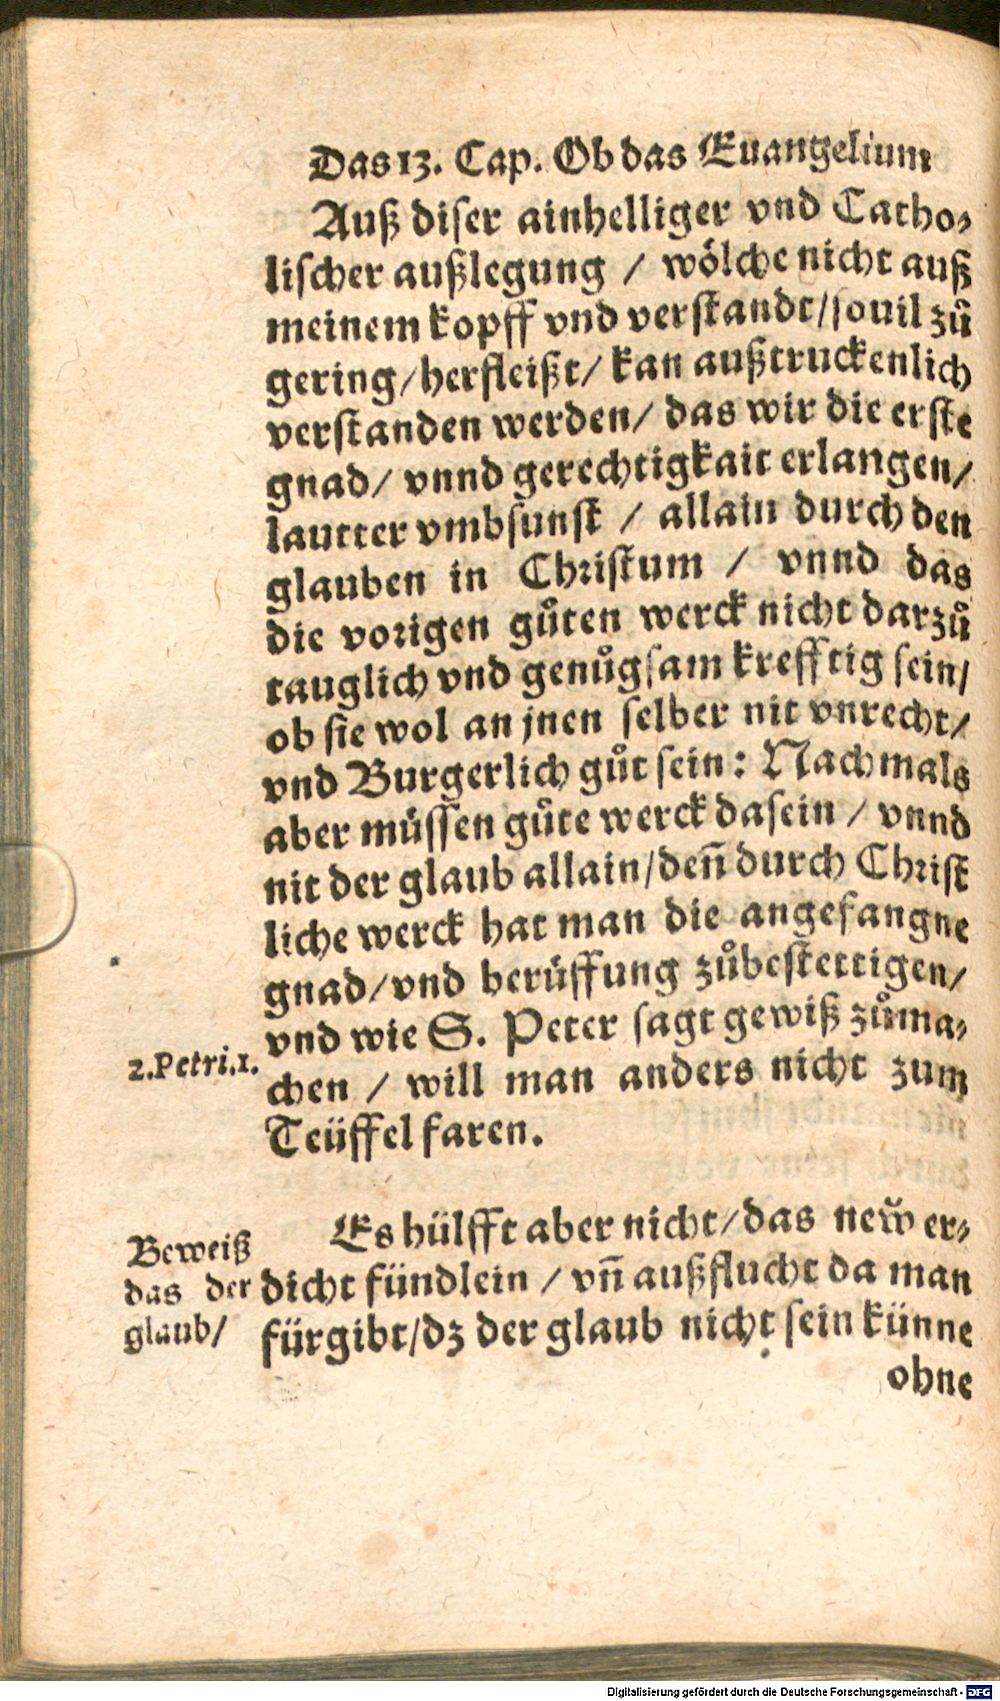 Das 13. Cap. Ob das Euangelium
Auß diser ainhelliger vnd Catho-
lischer außlegung / wölche nicht auß
meinem kopff vnd verstandt / souil zů
gering / herfleißt / kan außtruckenlich
verstanden werden / das wir die erste
gnad / vnnd gerechtigkait erlangen /
lautter vmbsunst / allain durch den
glauben in Christum / vnnd das
die vorigen gůten werck nicht darzů
tauglich vnd genůgsam krefftig sein /
ob sie wol an jnen selber nit vnrecht /
vnd Burgerlich gůt sein: Nachmals
aber müssen gůte werck dasein / vnnd
nit der glaub allain / deñ durch Christ
liche werck hat man die angefangne
gnad / vnd berüffung zůbestettigen /
vnd wie S. Peter sagt gewiß zůma-
2.Petri.1.
chen / will man anders nicht zum
Teüffel faren.
Es hülfft aber nicht / das new̌ er-
Beweiß
das der
glaub /
dicht fündlein / vñ außflucht da man
fürgibt / dz der glaub nicht sein künne
ohne
Digitalisierung gefördert durch die Deutsche Forschungsgemeinschaft - DFG